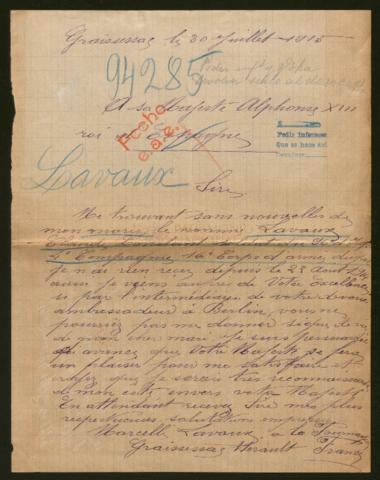 Graissessac le 30 Juillet 1915
94285
A sa Majesté Alphonse XIII
roi d'Espagne
Pedir informes
Que se haga así
Lavaux
Sire,
Me trouvant sans nouvelles de
mon marie, le nommé Lavaux
2e Compagnie 16e Corps d'armée, duquel
je n'ai rien reçu depuis le 23 Août 1914
aussi je viens auprès de Votre Excellence
si par l'intermédiaire de votre
ambassadeur à Berlin, vous ne
pourriez pas me donner signe de vie
de mon cher mari. Je suis persuadée
d'avance que Votre Majesté se fera
un plaisir pour me satisfaire et
croyez que je serais très reconnaissante
de mon côté, envers votre Majesté
En attendant recevez Sire mes plus
respectueuses salutations empressées
Marcelle Lavaux, à la
Graissessac Hérault France